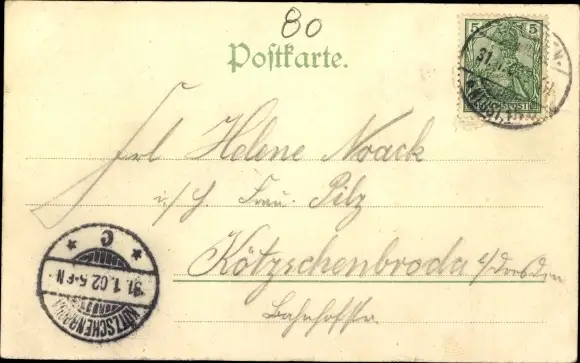 80
Postkarte.
5 5
31.1.02
REICHSPOST
Frl Helene Noack
Frau Pilz
Kötzschenbroda b/Dresden
Bahnhofstr.
C
31.1.02.5-6N
KÖTZSCHENBRODA